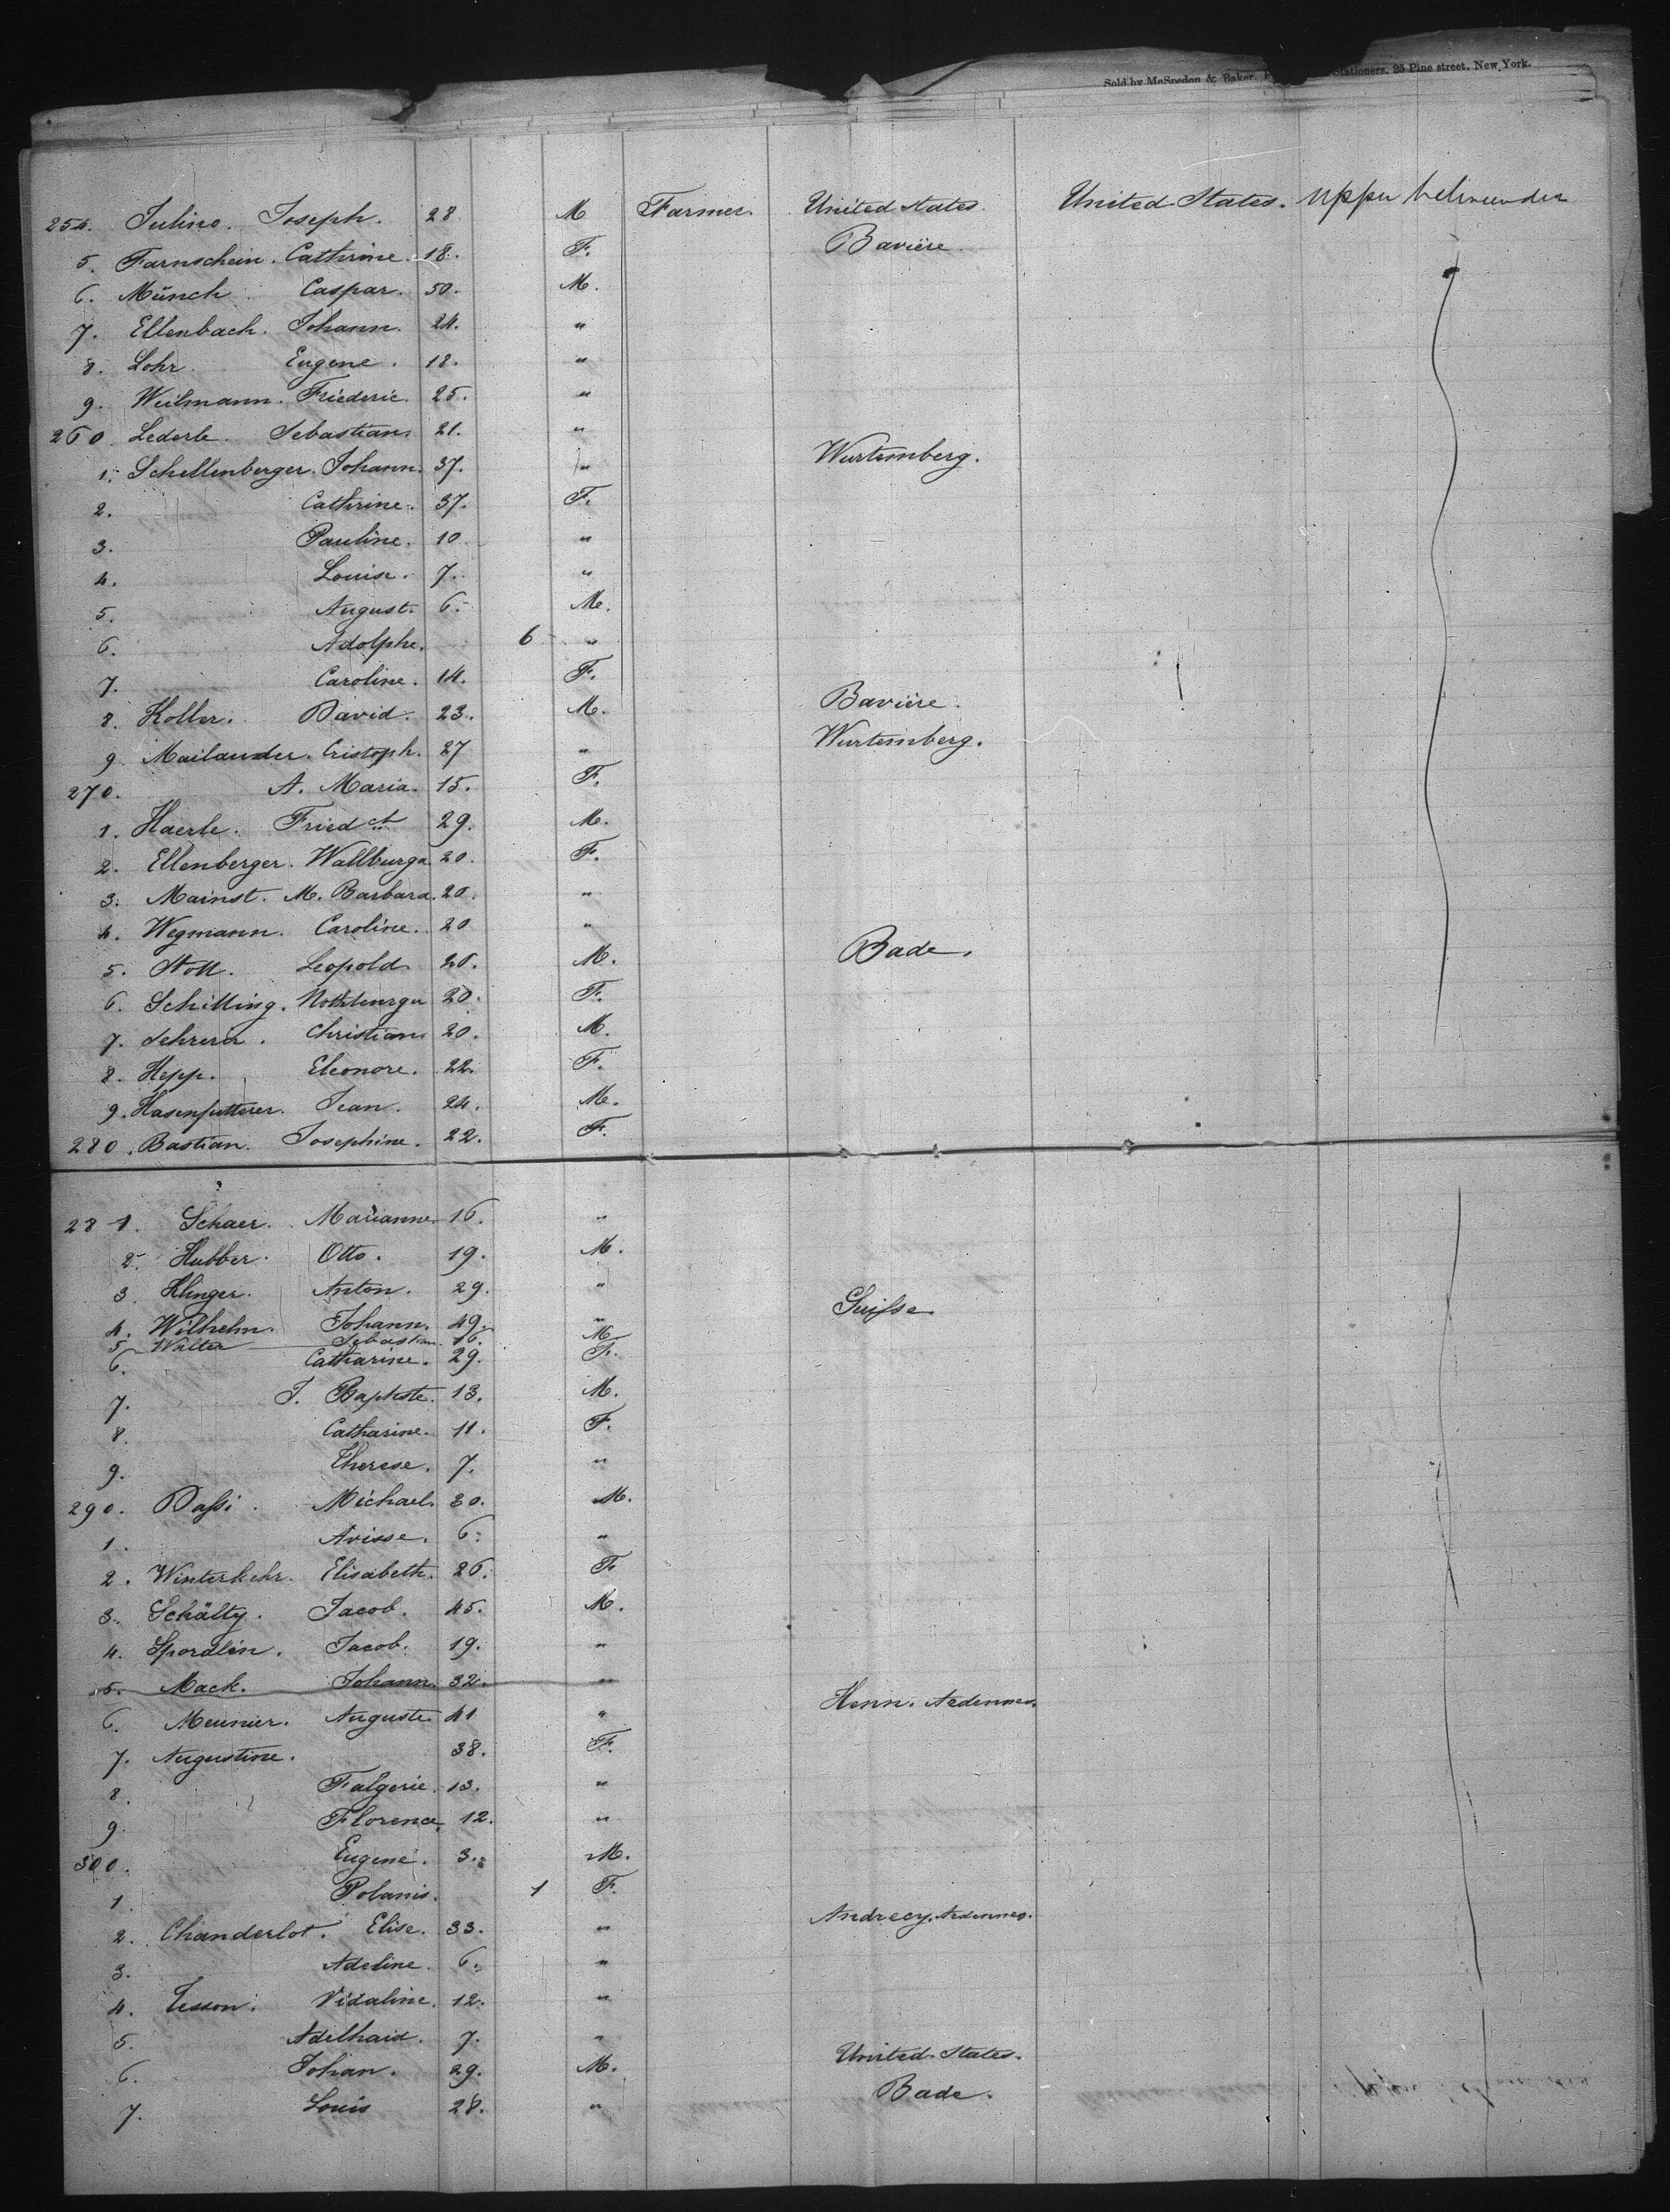 Sold by McSpedon & Baker, Stationers, 25 Pine street, New York.
254. Julino. Joseph. 28 M Farmer. United States United States. upper between der
5. Farnschein. Cathrine. 18. F. Bavière.
6. Münch Caspar. 50. M.
7. Ellenbach. Johann. 24. "
8. Lohr. Eugene. 18. "
9. Weilmann. Friederic. 25. "
260 Lederle. Sebastian. 21. "
1. Schellenberger. Johann. 37. " Wurtemberg.
2. Cathrine. 37. F.
3. Pauline. 10 "
4. Louise. 7. "
5. August. 6. M.
6. Adolphe. 6 "
7. Caroline. 14. F.
8. Koller. David. 23. M. Bavière.
9 Mailander. Cristoph. 27 " Wurtemberg.
270. A. Maria. 15. F.
1. Haerle. Fried ch 29. M.
2. Ellenberger. Wallburga 20. F.
3. Mainst. M. Barbara. 20. "
4. Wegmann. Caroline. 20 "
5. Stoll. Leopold 26. M. Bade.
6. Schilling. 20. F.
7. Christian 20. M.
8. Hepp. Eleonore. 22. F.
9. Hasenfutterer. Jean. 24. M.
280. Bastian. Josephine. 22. F.
281. Schaer. Marianne 16. "
2. Hubber. Otto. 19. M.
3. Klinger. Anton. 29. "
4. Wilhelm. Johann. 49. " Suisse.
5 Walter Sebastian 16. M.
6. Catharine. 29. F.
7. J. Baptiste. 13. M.
8. Catharine. 11. F.
9. Therese. 7. "
290. Dassi. Michael. 30. M.
1. Avisse. 6. "
2. Winterkehr. Elisabeth. 26. F.
3. Schälty. Jacob. 45. M.
4. Sporalin. Jacob. 19. "
5. Mack. Johann. 32. "
6. Meunier. Auguste. 41 " Henn. Ardennes.
7. Augustine. 38. F.
8. Falgerie. 13. "
9. Florence. 12. "
300. Eugene. 3. M.
1. Polanis. 1 F.
2. Chanderlot. Elise. 33. " Andrecy. Ardennes.
3. Adeline. 6. "
4. Tesson. Vidaline. 12. "
5. Adelhaid. 7. "
6. Johan. 29. M. United States.
7. Louis 28. " Bade.